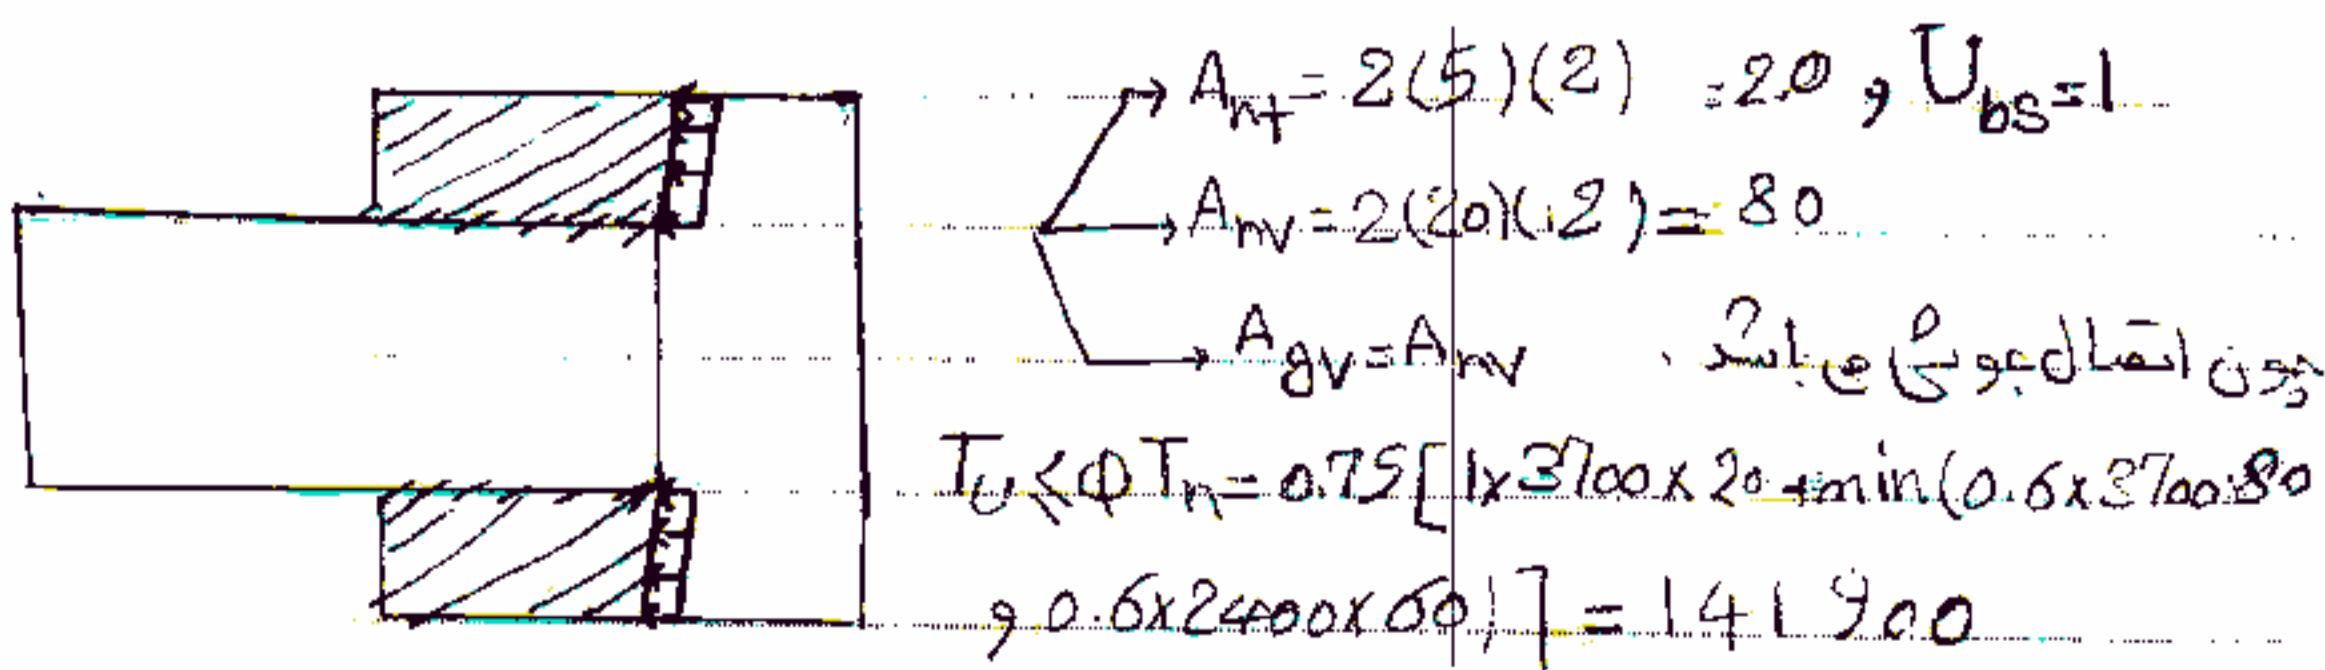 A_nt = 2(5)(2) = 20 , U_bs = 1
A_nv = 2(20)(2) = 80
A_gv = A_nv چون اتصال جوشی می باشد.
T_u ≤ Φ T_n = 0.75 [1×3700×20 + min(0.6×3700×80
, 0.6×2400×80)] = 141900